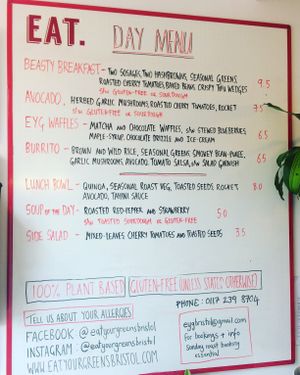 EAT. DAY MENU
BEASTY BREAKFAST - TWO SOSAGES, TWO HASHBROWNS, SEASONAL GREENS
ROASTED CHERRY TOMATOES, BAKED BEANS CRISPY TATO WEDGES 9.5
S/W GLUTEN-FREE OR SOURDOUGH
AVOCADO. HERBED GARLIC MUSHROOMS, ROASTED CHERRY TOMATOES, ROCKET 7.5
S/W GLUTEN-FREE OR SOURDOUGH
EYG WAFFLES - MATCHA AND CHOCOLATE WAFFLES, S/W STEWED BLUEBERRIES,
MAPLE-SYRUP, CHOCOLATE DRIZZLE AND ICE-CREAM 6.5
BURRITO - BROWN AND WILD RICE, SEASONAL GREENS SMOKEY BEAN-PUREE,
GARLIC MUSHROOMS, AVOCADO, TOMATO SALSA, S/W SALAD GARNISH 6.5
LUNCH BOWL - QUINOA, SEASONAL ROAST VEG, TOASTED SEEDS, ROCKET, 8.0
AVOCADO, TAHINI SAUCE
SOUP OF THE DAY - ROASTED RED-PEPPER AND STRAWBERRY 5.0
S/W TOASTED SOURDOUGH OR GLUTEN-FREE
SIDE SALAD - MIXED-LEAVES CHERRY TOMATOES AND TOASTED SEEDS 3.5
100% PLANT BASED GLUTEN-FREE (UNLESS STATED OTHERWISE)
TELL US ABOUT YOUR ALLERGIES
PHONE: 0117 239 8704
FACEBOOK @eatyourgreensbristol
INSTAGRAM: @eatyourgreensbristol
WWW.EATYOURGREENSBRISTOL.COM
eygbristol@gmail.com
for bookings + info
Sunday roast booking
essential